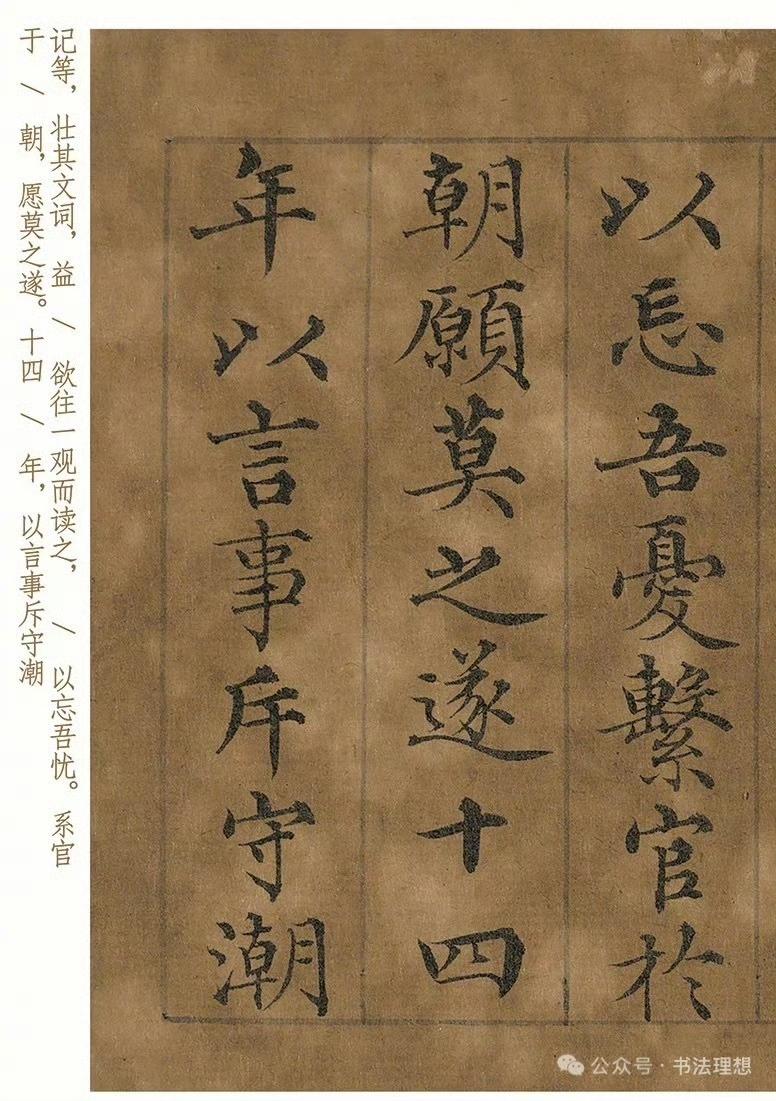 以忘吾憂繫官於
朝願莫之遂十四
年以言事斥守潮
记等，壮其文词，益 / 欲往一观而读之， / 以忘吾忧。系官
于 / 朝，愿莫之遂。十四 / 年，以言事斥守潮
公众号·书法理想